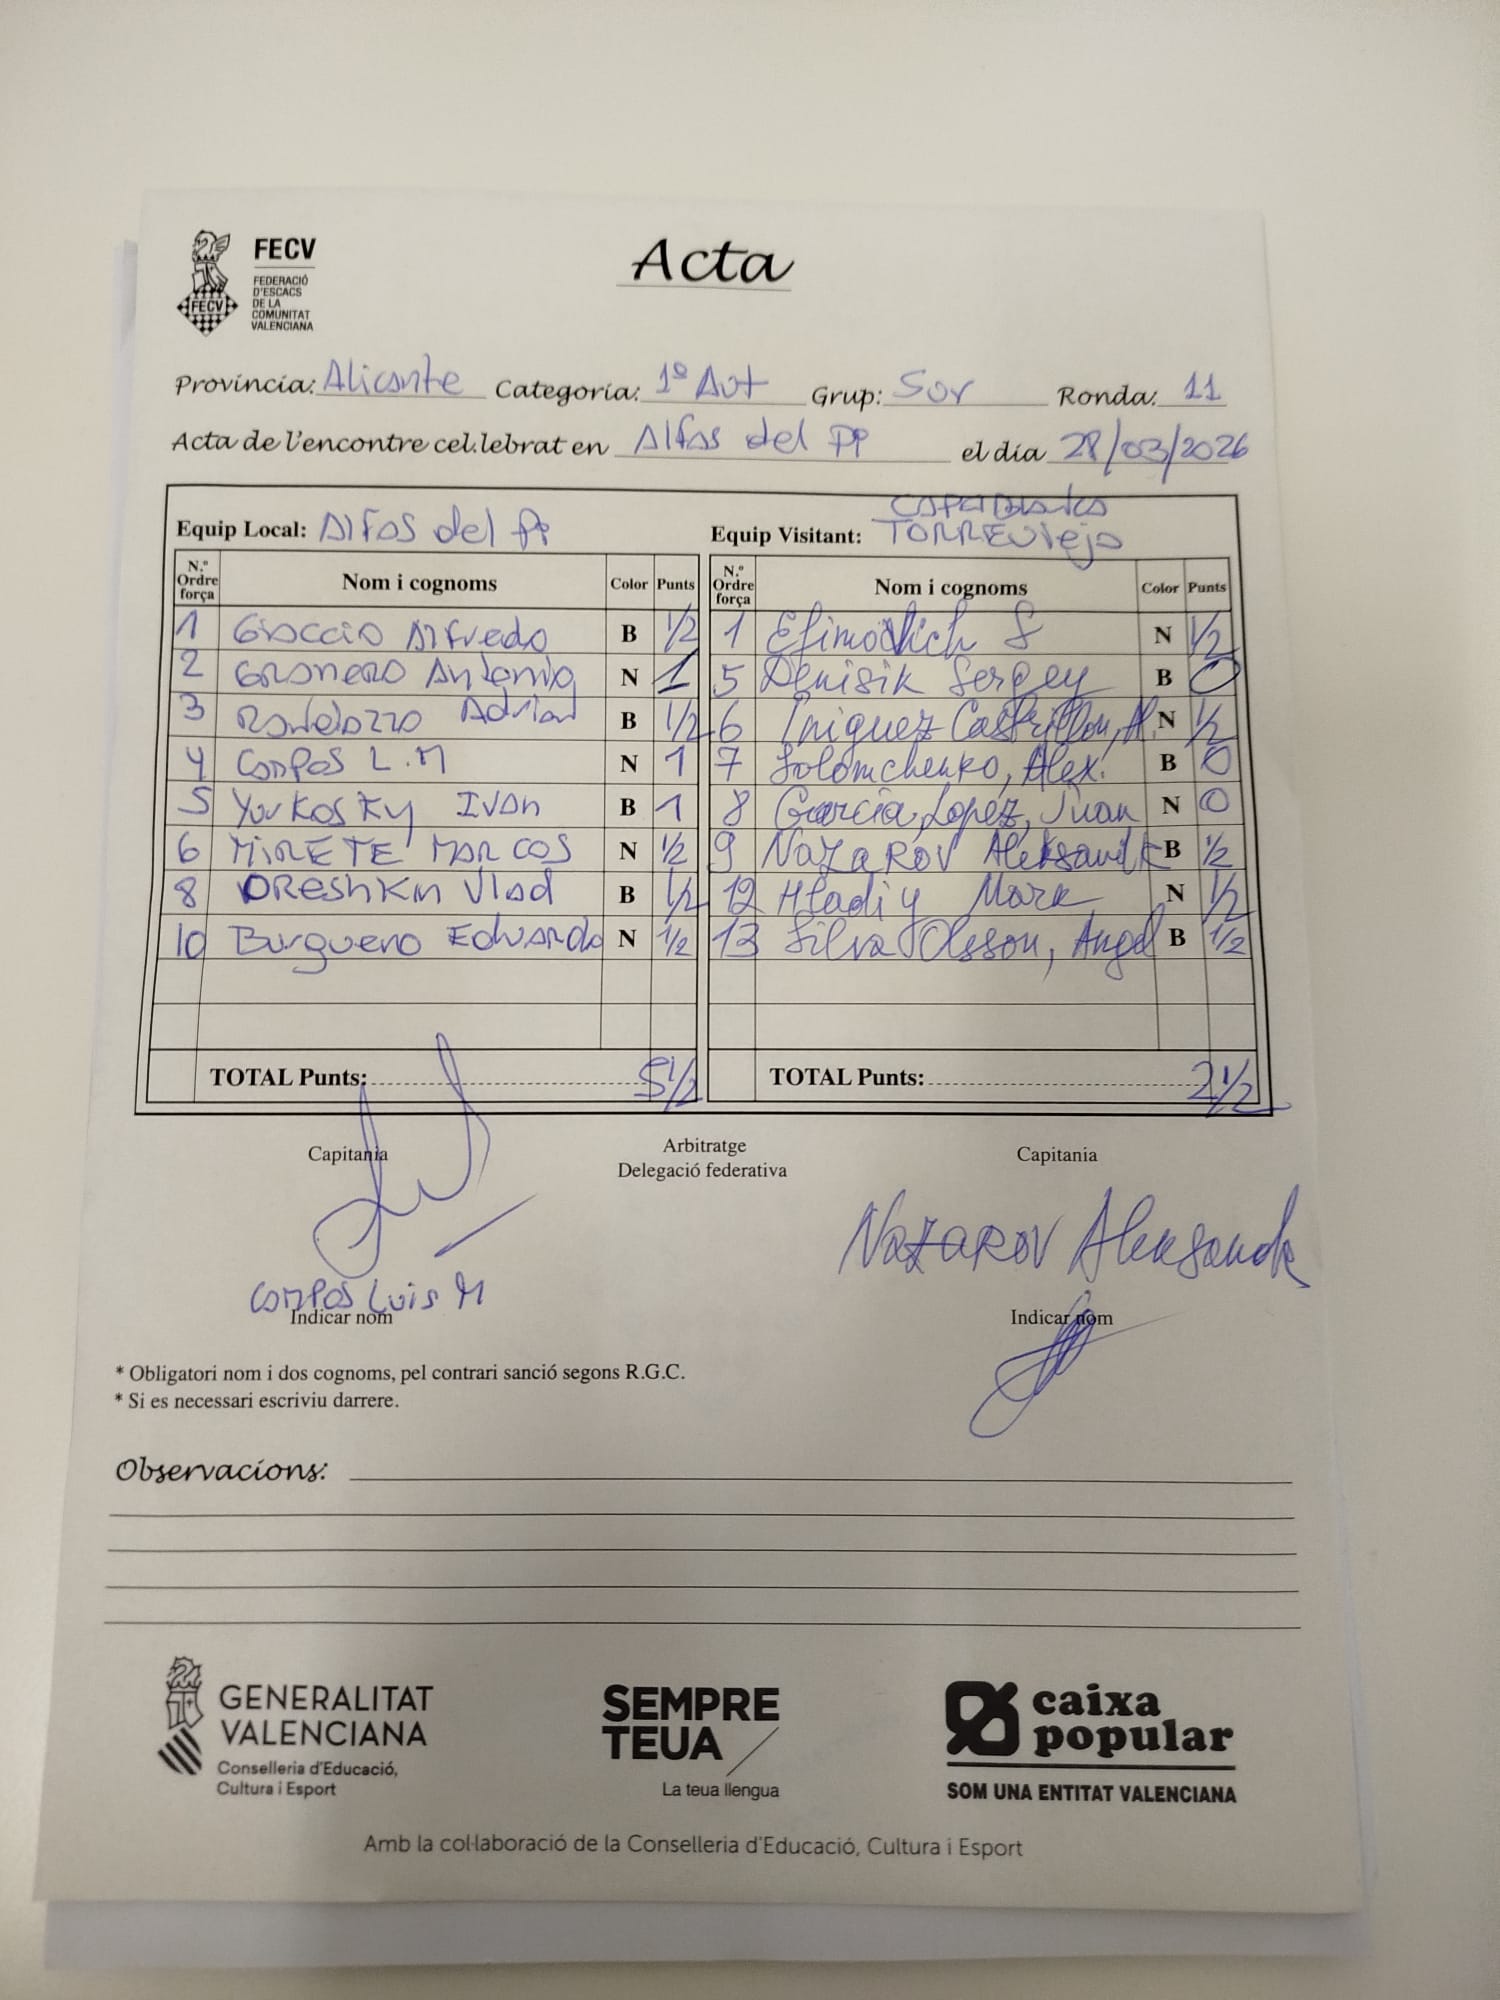 FECV
FEDERACIÓ
D'ESCACS
DE LA
COMUNITAT
VALENCIANA
FECV
Acta
Província: Alicante Categoría: 1ª Aut Grup: Sur Ronda: 11
Acta de l'encontre cel.lebrat en Alfas del Pi el día 28/03/2026
Equip Local: Alfas del Pi Equip Visitant: Torrevieja
N.º Ordre força Nom i cognoms Color Punts N.º Ordre força Nom i cognoms Color Punts
1 Alfredo B 1/2 1 Efimovich S N 1/2
2 Granero Antonio N 1 5 Denisik Sergey B 0
3 Adrian B 1/2 6 Iniguez Castrillon, A. N 1/2
4 Campos L.M N 1 7 Solomchenko, Alex. B 0
5 Yurkosky Ivan B 1 8 Garcia Lopez, Juan N 0
6 MIRETE MARCOS N 1/2 9 NAZAROV Aleksandr B 1/2
8 Oreshkin Vlad B 1/2 12 Hladiy Mark N 1/2
10 Burgueno Eduardo N 1/2 13 Silva Olsson, Angel B 1/2
TOTAL Punts: 5 1/2 TOTAL Punts: 2 1/2
Capitania Arbitratge Capitania
Delegació federativa
Campos Luis M NAZAROV Aleksandr
Indicar nom Indicar nom
* Obligatori nom i dos cognoms, pel contrari sanció segons R.G.C.
* Si es necessari escriviu darrere.
Observacions:
GENERALITAT
VALENCIANA
Conselleria d'Educació,
Cultura i Esport
SEMPRE
TEUA
La teua llengua
caixa
popular
SOM UNA ENTITAT VALENCIANA
Amb la col·laboració de la Conselleria d'Educació, Cultura i Esport